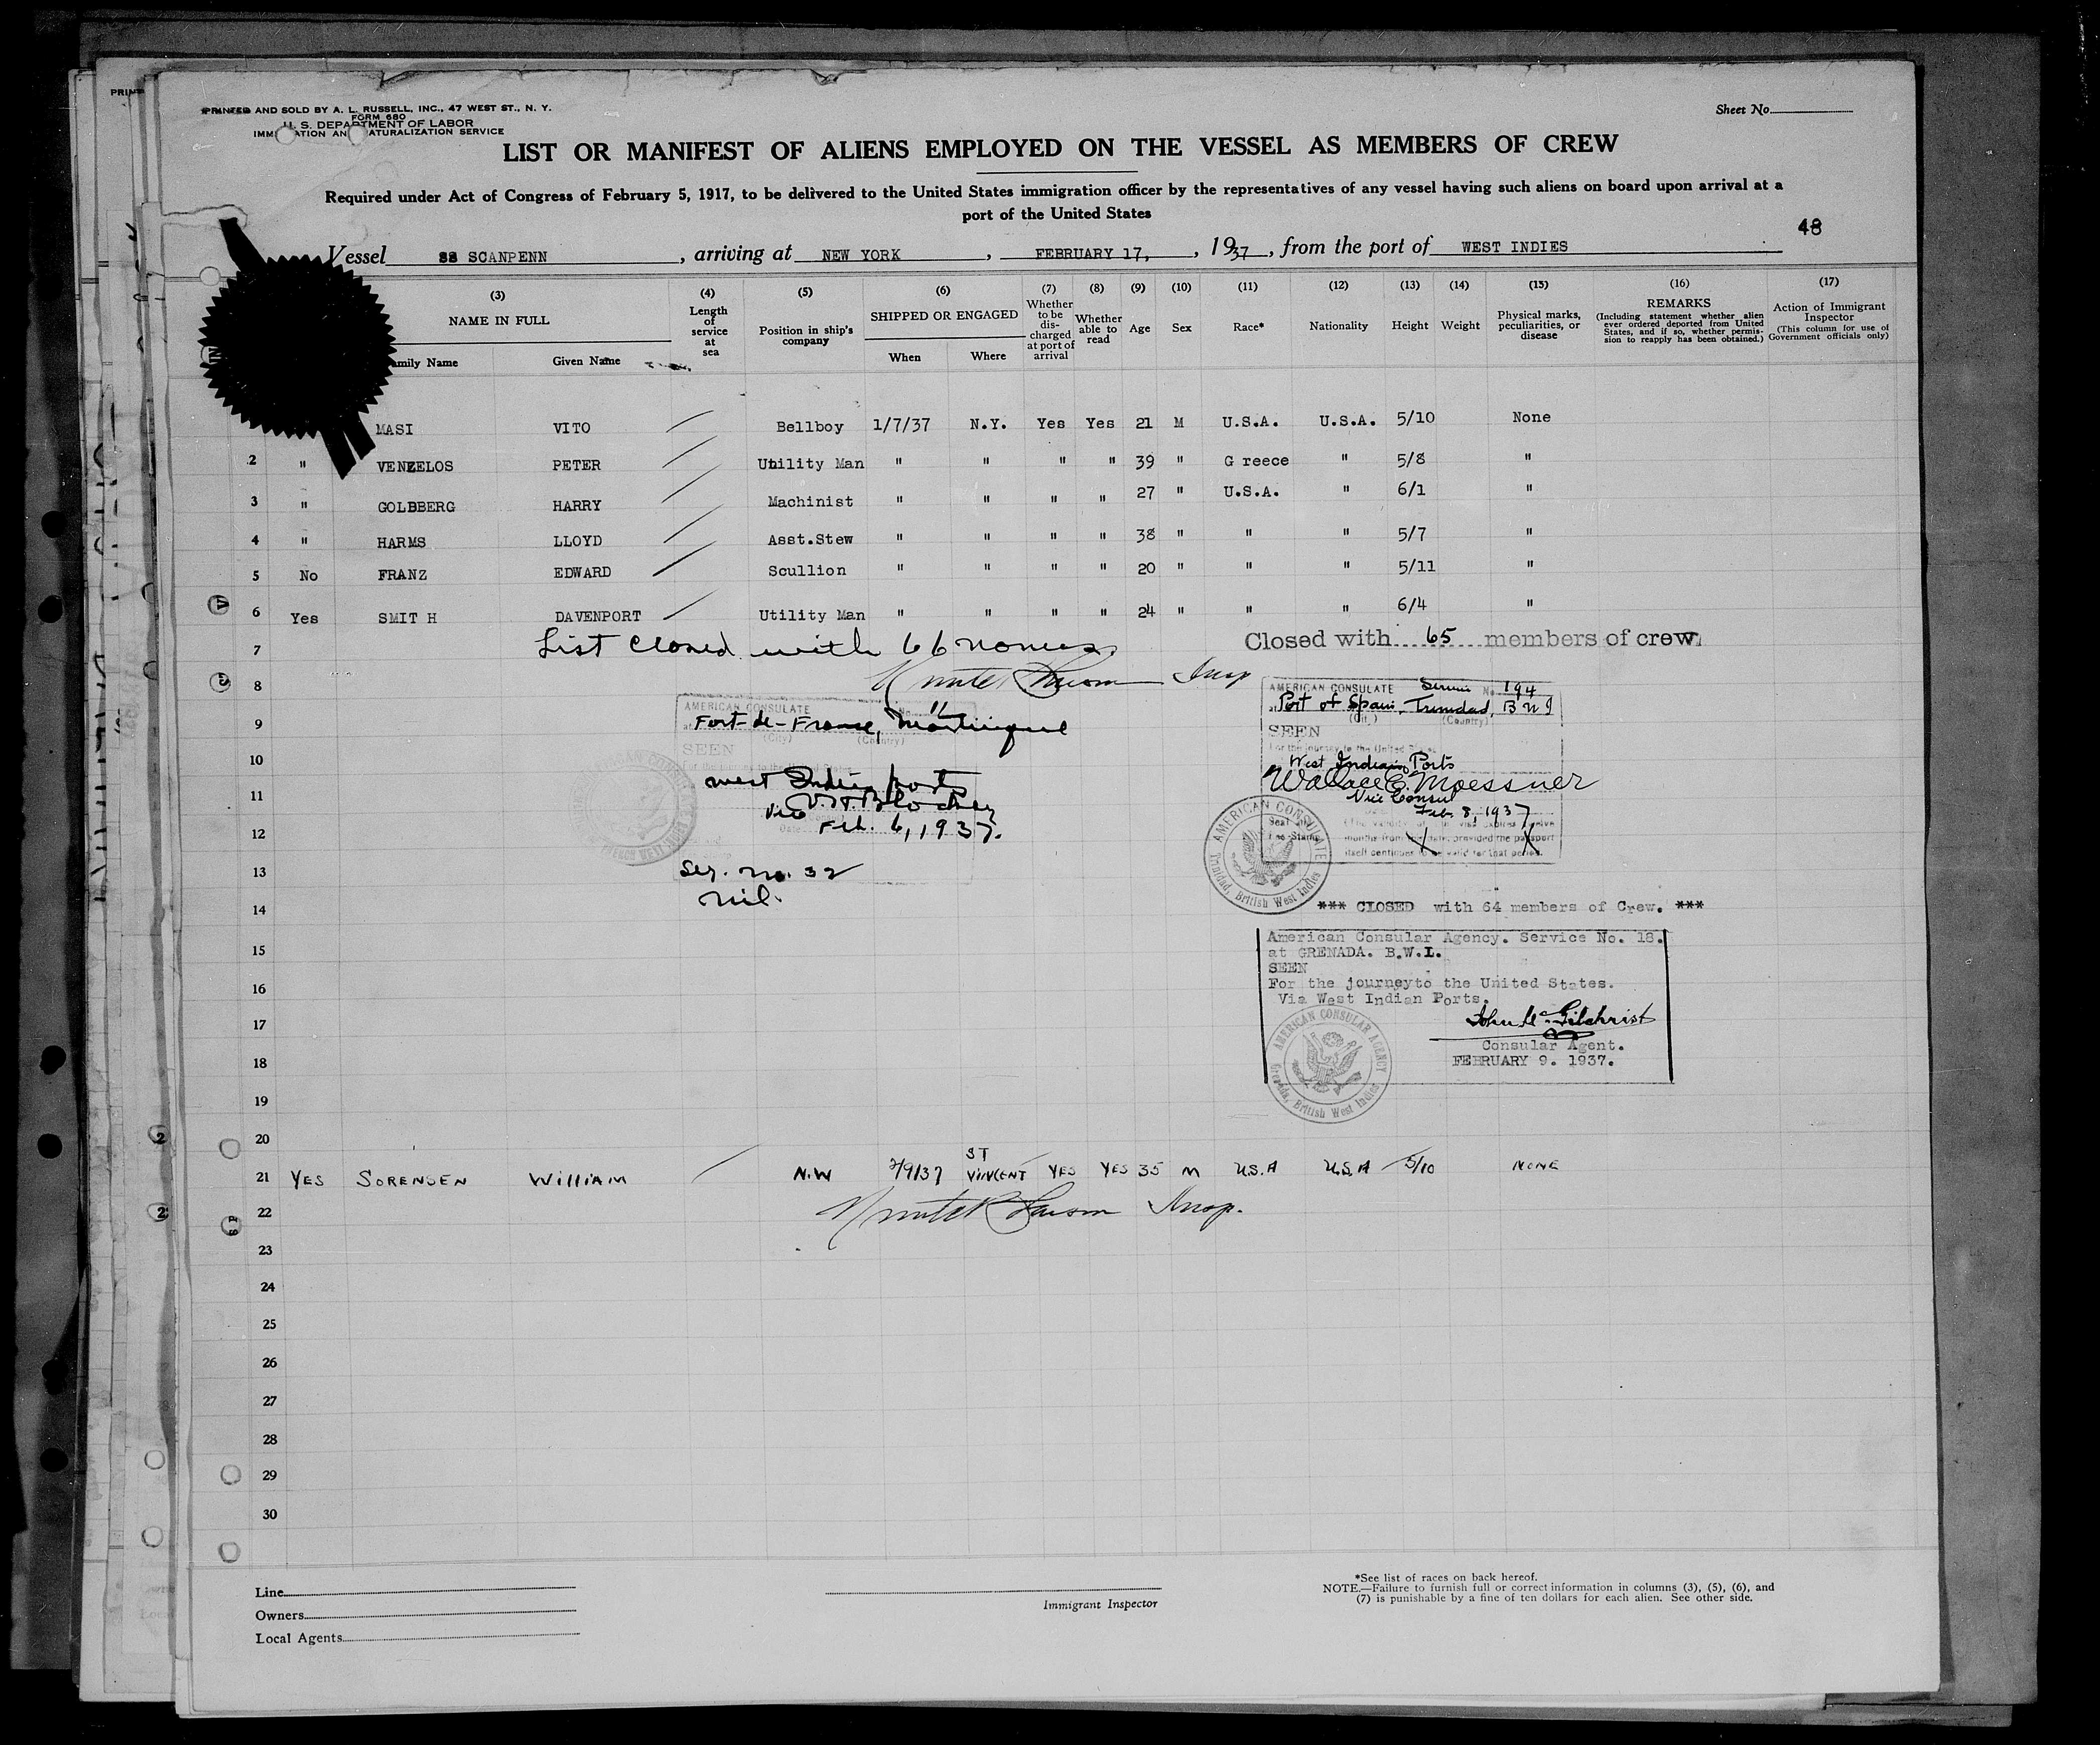 PRINTED AND SOLD BY A. L. RUSSELL, INC., 47 WEST ST., N. Y.
FORM 680
U. S. DEPARTMENT OF LABOR
IMMIGRATION AND NATURALIZATION SERVICE
Sheet No.
LIST OR MANIFEST OF ALIENS EMPLOYED ON THE VESSEL AS MEMBERS OF CREW
Required under Act of Congress of February 5, 1917, to be delivered to the United States immigration officer by the representatives of any vessel having such aliens on board upon arrival at a
port of the United States
48
Vessel SS SCANPENN, arriving at NEW YORK, FEBRUARY 17, , 1937, from the port of WEST INDIES
(3) (4) (5) (6) (7) (8) (9) (10) (11) (12) (13) (14) (15) (16) (17)
NAME IN FULL
Family Name Given Name
Length of service at sea
Position in ship's company
SHIPPED OR ENGAGED
When Where
Whether to be discharged at port of arrival
Whether able to read
Age Sex Race* Nationality Height Weight
Physical marks, peculiarities, or disease
REMARKS
(Including statement whether alien ever ordered deported from United States, and if so, whether permission to reapply has been obtained.)
Action of Immigrant Inspector
(This column for use of Government officials only)
MASI VITO Bellboy 1/7/37 N.Y. Yes Yes 21 M U.S.A. U.S.A. 5/10 None
2 " VENZELOS PETER Utility Man " " " " 39 " G reece " 5/8 "
3 " GOLDBERG HARRY Machinist " " " " 27 " U.S.A. " 6/1 "
4 " HARMS LLOYD Asst.Stew " " " " 38 " " " 5/7 "
5 No FRANZ EDWARD Scullion " " " " 20 " " " 5/11 "
6 Yes SMIT H DAVENPORT Utility Man " " " " 24 " " " 6/4 "
7 List closed with 66 names. Closed with 65 members of crew.
8 Insp
AMERICAN CONSULATE
at Fort-de-France, Martinique
(City) (Country)
SEEN
For the journey to the United States
West Indian ports
Feb. 6, 1937.
Ser. No. 32
nil.
AMERICAN CONSULATE Service No. 194
at Port of Spain, Trinidad, B W I
(City) (Country)
SEEN
For the journey to the United States
West Indian Ports
Wallace E. Moessner
Vice Consul
Feb. 8, 1937
months from the date, provided the passport
itself continues to be valid for that period.
AMERICAN CONSULATE
Trinidad, British West Indies
Seal
Fee Stamp
*** CLOSED with 64 members of Crew. ***
American Consular Agency. Service No. 18.
at GRENADA. B.W.I.
SEEN
For the journeyto the United States.
Via West Indian Ports.
John Mc Gilchrist
Consular Agent.
FEBRUARY 9. 1937.
AMERICAN CONSULAR AGENCY
Grenada, British West Indies
9
10
11
12
13
14
15
16
17
18
19
20
21 YES SORENSEN WILLIAM N.W 2/9/37 ST VINCENT YES YES 35 M U.S.A U.S.A 5/10 NONE
22 Insp.
23
24
25
26
27
28
29
30
Line
Owners
Local Agents
Immigrant Inspector
*See list of races on back hereof.
NOTE.—Failure to furnish full or correct information in columns (3), (5), (6), and
(7) is punishable by a fine of ten dollars for each alien. See other side.